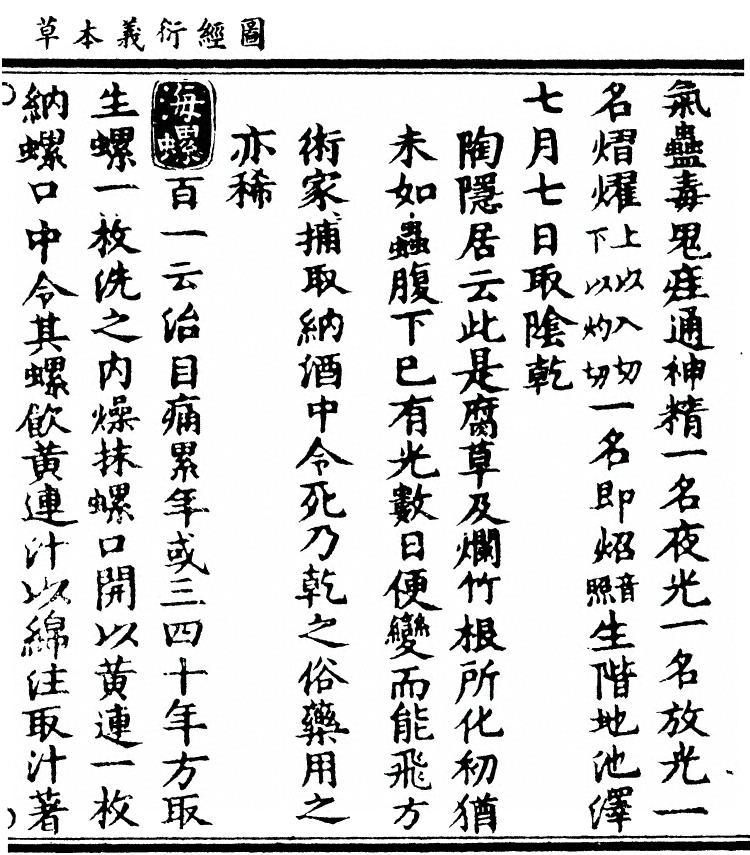 圖經衍義本草
氣蠱毒鬼疰通神精一名夜光一名放光一
名熠燿上以入切下以灼切一名即炤音照生階地池澤
七月七日取陰乾
陶隱居云此是腐草及爛竹根所化初猶
未如蟲腹下巳有光數日便變而能飛方
術家捕取納酒中令死乃乾之俗藥用之
亦稀
海螺百一云治目痛累年或三四十年方取
生螺一枚洗之内燥抹螺口開以黃連一枚
納螺口中令其螺飲黃連汁以綿注取汁著